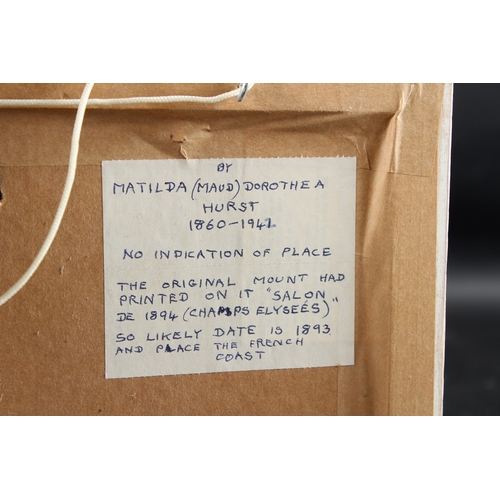 BY
MATILDA (MAUD) DOROTHEA
HURST
1860-1941
NO INDICATION OF PLACE
THE ORIGINAL MOUNT HAD
PRINTED ON IT "SALON
DE 1894 (CHAMPS ELYSEÉS)"
SO LIKELY DATE IS 1893
AND PLACE THE FRENCH
COAST